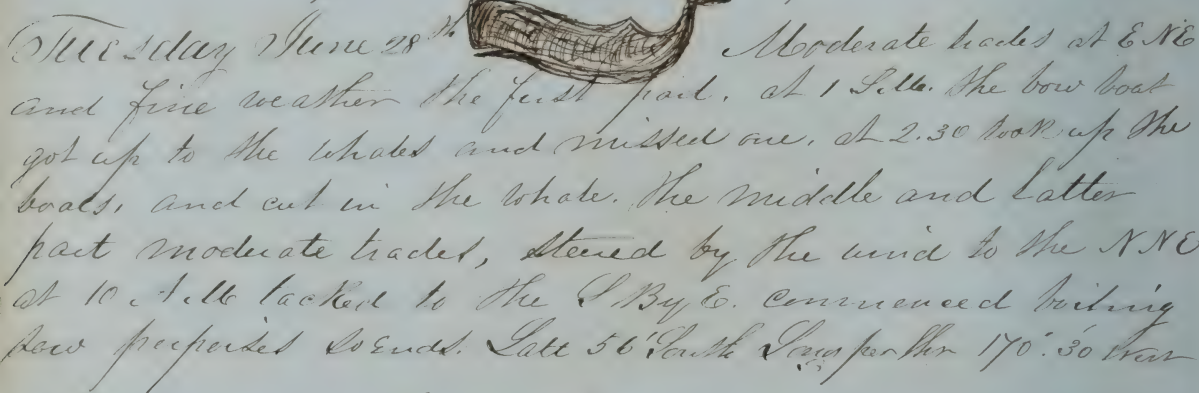 Tuesday June 28th Moderate trades at ENE
and fine weather the first part. at 1 P.M. the bow boat
got up to the whales and missed one. at 2.30 took up the
boats, and cut in the whale. the middle and latter
part moderate trades, steered by the wind to the NNE
at 10 A M tacked to the S By E. commenced boiling
saw porpoises so ends. Latt 56' South Long per Chr 170°.30' West